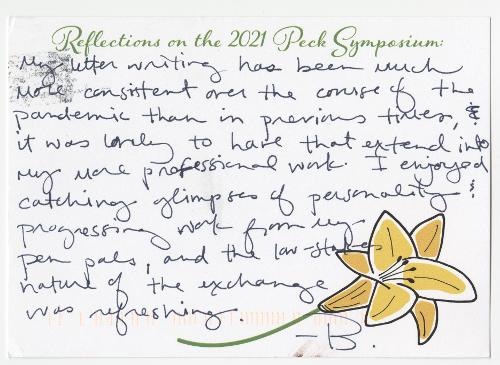 Reflections on the 2021 Peck Symposium:
My letter writing has been much
more consistent over the course of the
pandemic than in previous times, &
it was lovely to have that extend into
my more professional work. I enjoyed
catching glimpses of personality &
progressing work from my
pen pals, and the low-stakes
nature of the exchange
was refreshing.
-B.